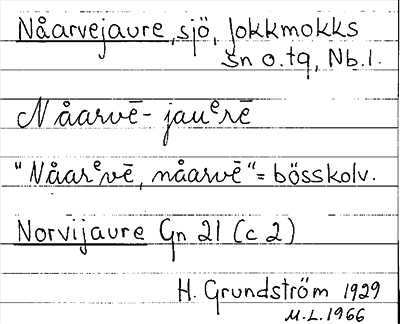 Nåarvejaure, sjö, Jokkmokks
sn o. tg, Nb.l.
Nåarvē - jauᵉrē
"Nåarᵉvē, nåarvē" = bösskolv.
Norvijaure Gn 21 (c 2)
H. Grundström 1929
M.L. 1966